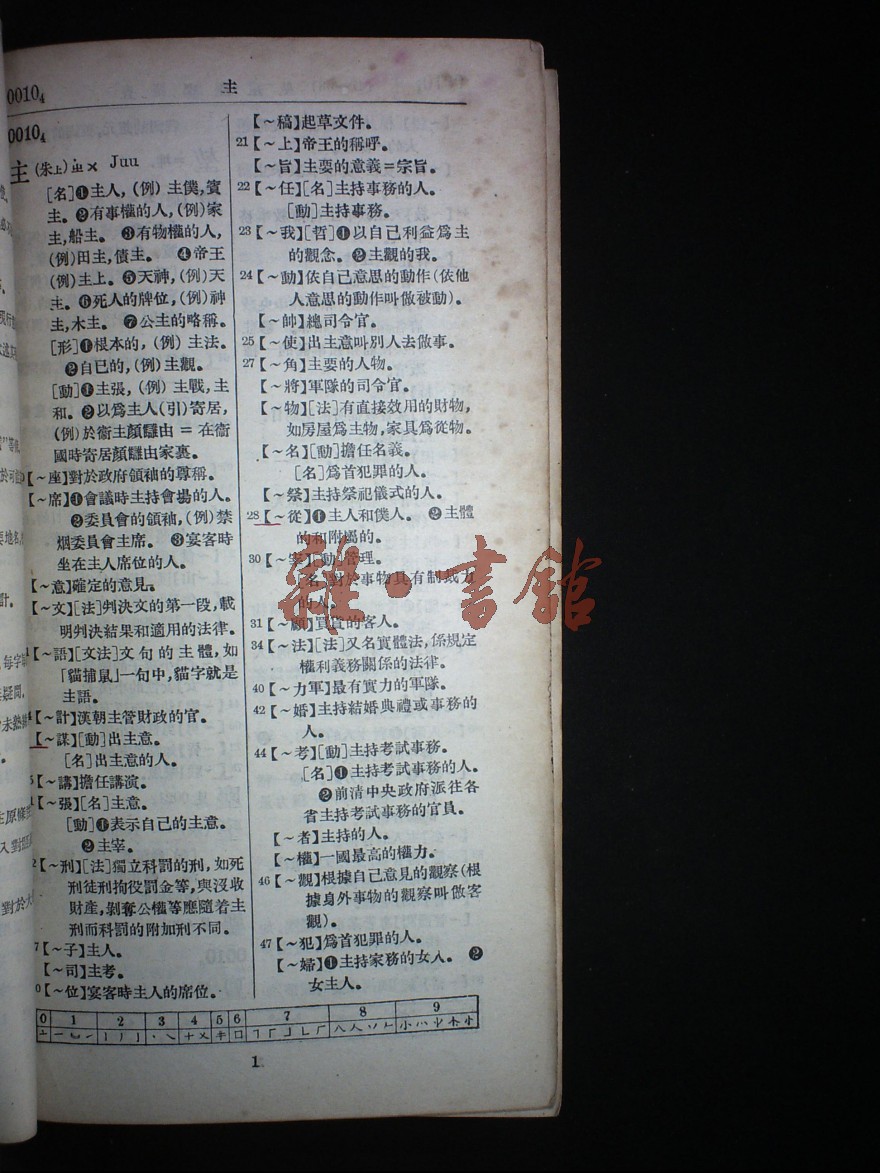 0010₄
主
0010₄
主 (朱上)ㄓㄨ Juu
[名]❶主人,(例)主僕,賓
主。❷有事權的人,(例)家
主,船主。❸有物權的人,
(例)田主,債主。❹帝王
(例)主上。❺天神,(例)天
主。❻死人的牌位,(例)神
主,木主。❼公主的略稱。
[形]❶根本的,(例)主法。
❷自己的,(例)主觀。
[動]❶主張,(例)主戰,主
和。❷以爲主人(引)寄居,
(例)於衞主顏讎由=在衞
國時寄居顏讎由家裏。
【~座】對於政府領袖的尊稱。
【~席】❶會議時主持會場的人。
❷委員會的領袖,(例)禁
烟委員會主席。❸宴客時
坐在主人席位的人。
【~意】確定的意見。
【~文】[法]判決文的第一段,載
明判決結果和適用的法律。
【~語】[文法]文句的主體,如
「貓捕鼠」一句中,貓字就是
主語。
【~計】漢朝主管財政的官。
【~謀】[動]出主意。
[名]出主意的人。
【~講】擔任講演。
【~張】[名]主意。
[動]❶表示自己的主意。
❷主宰。
【~刑】[法]獨立科罰的刑,如死
刑徒刑拘役罰金等,與沒收
財產,剝奪公權等應隨着主
刑而科罰的附加刑不同。
【~子】主人。
【~司】主考。
【~位】宴客時主人的席位。
【~稿】起草文件。
21【~上】帝王的稱呼。
【~旨】主要的意義=宗旨。
22【~任】[名]主持事務的人。
[動]主持事務。
23【~我】[哲]❶以自己利益爲主
的觀念。❷主觀的我。
24【~動】依自己意思的動作(依他
人意思的動作叫做被動)。
【~帥】總司令官。
25【~使】出主意叫別人去做事。
27【~角】主要的人物。
【~將】軍隊的司令官。
【~物】[法]有直接效用的財物,
如房屋爲主物,家具爲從物。
【~名】[動]擔任名義。
[名]爲首犯罪的人。
【~祭】主持祭祀儀式的人。
28【~從】❶主人和僕人。❷主體
的和附屬的。
30【~宰】[動]管理。
[名]對於事物具有制裁力
的人。
31【~顧】買貨的客人。
34【~法】[法]又名實體法,係規定
權利義務關係的法律。
40【~力軍】最有實力的軍隊。
42【~婚】主持結婚典禮或事務的
人。
44【~考】[動]主持考試事務。
[名]❶主持考試事務的人。
❷前清中央政府派往各
省主持考試事務的官員。
【~者】主持的人。
【~權】一國最高的權力。
46【~觀】根據自己意見的觀察(根
據身外事物的觀察叫做客
觀)。
47【~犯】爲首犯罪的人。
【~婦】❶主持家務的女人。❷
女主人。
雜·書館
0 1 2 3 4 5 6 7 8 9
1